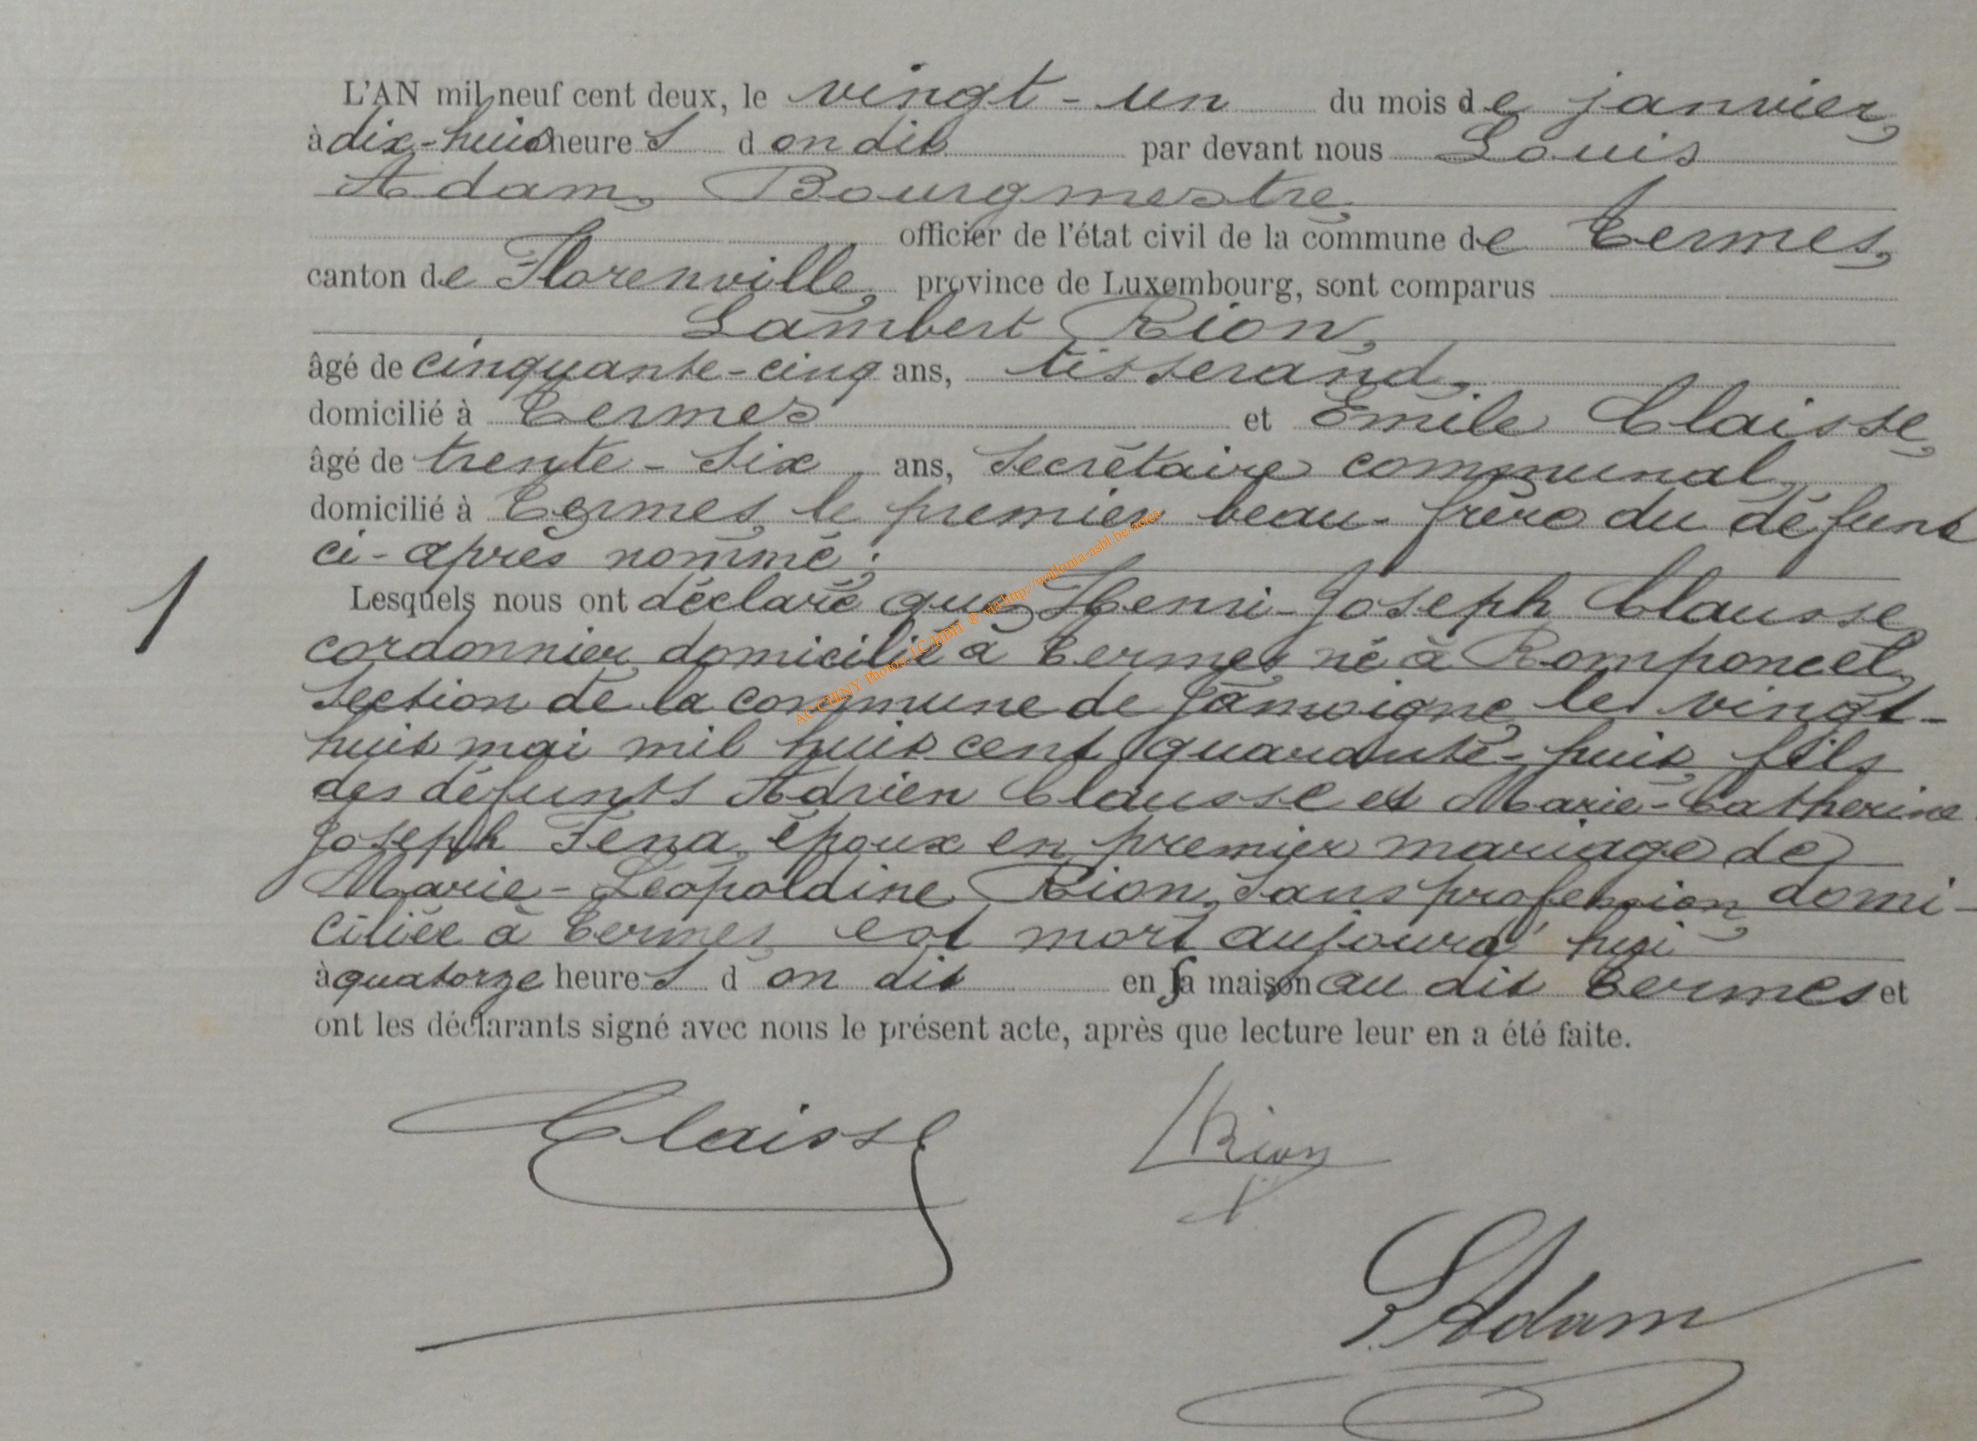 L'AN mil neuf cent deux, le vingt-un du mois de janvier,
à dix-huit heures d on dit par devant nous Louis
Adam, Bourgmestre,
officier de l'état civil de la commune de Termes,
canton de Florenville, province de Luxembourg, sont comparus
Lambert Rion,
âgé de cinquante-cinq ans, tisserand,
domicilié à Termes et Emile Claisse,
âgé de trente-six ans, secrétaire communal,
domicilié à Termes, le premier beau-frère du défunt
ci-après nommé;
1
Lesquels nous ont déclaré que Henri-Joseph Clausse
cordonnier, domicilié à Termes, né à Romponcel,
section de la commune de Jamoigne, le vingt-
huit mai mil huit cent quarante-huit, fils
des défunts Adrien Clausse et Marie-Catherine
Joseph Fena, époux en premier mariage de
Marie-Léopoldine Rion, sans profession, domi-
ciliée à Termes, est mort aujourd'hui
à quatorze heures d on dit en sa maison au dit Termes et
ont les déclarants signé avec nous le présent acte, après que lecture leur en a été faite.
Claisse
LRion
L Adam